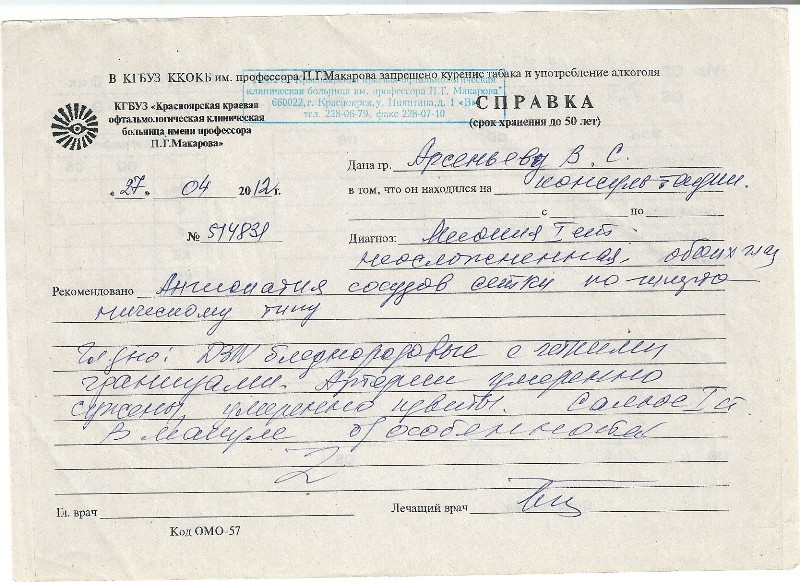 В КГБУЗ ККОКБ им. профессора П.Г.Макарова запрещено курение табака и употребление алкоголя
клиническая больница им. профессора П.Г. Макарова"
660022, г. Красноярск, у. Никитина, д. 1 «В»
тел. 228-06-79, факс 228-07-10
КГБУЗ «Красноярская краевая
офтальмологическая клиническая
больница имени профессора
П.Г.Макарова»
СПРАВКА
(срок хранения до 50 лет)
Дана гр. Арсеньеву В. С.
"27" 04 2012 г.
в том, что он находился на консультации.
с по
№ 514831
Диагноз: Миопия I ст.
неосложненная, обоих глаз
Рекомендовано Ангиопатия сосудов сетки по гипото
ническому типу
Гл дно: ДЗН бледнорозовые с четкими
границами. Артерии умеренно
сужены, умеренно извиты. Салюс I ст
В макуле б/особенностей
Гл. врач
Лечащий врач
Код ОМО-57